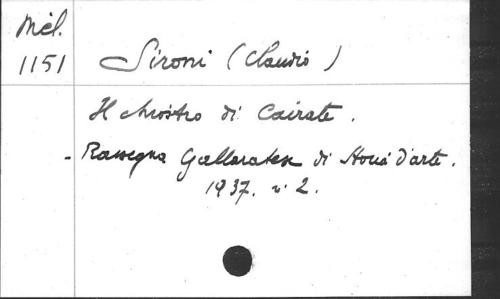 Mél.
1151
Sironi (Claudio)
Il chiostro di Cairate.
- Rassegna Gallaratese di Storia d'arte.
1937. n° 2.